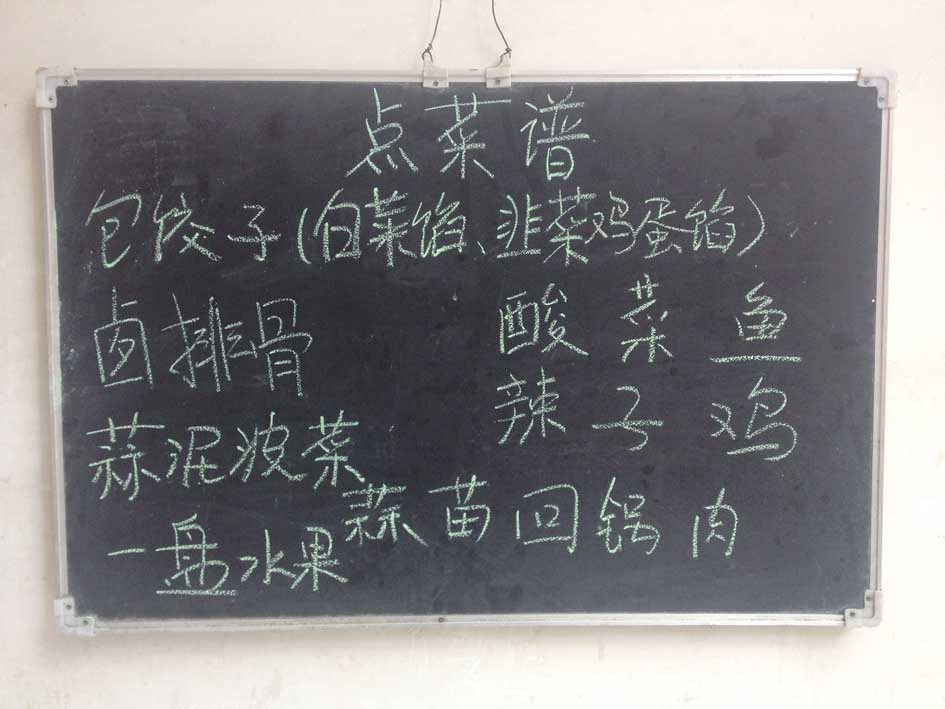 点菜谱
包饺子(白菜馅、韭菜鸡蛋馅)
卤排骨 酸菜鱼
辣子鸡
蒜泥波菜
蒜苗回锅肉
一盘水果